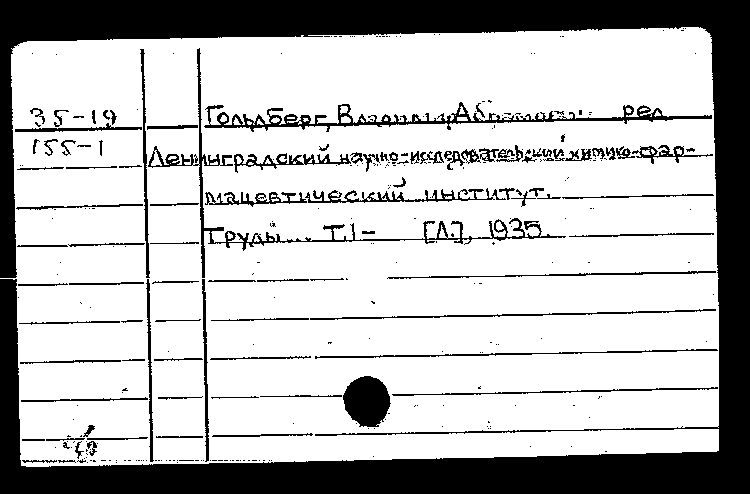 35-19 Гольдберг, Владимир Абрамович ред.
155-1 Ленинградский научно-исследовательский химико-фар-
мацевтический институт.
Труды... Т.1- [Л.], 1935.